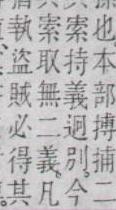 也。本部搏捕二
索持義迥別。今
其索取無二義。凡
執盜賊必得其